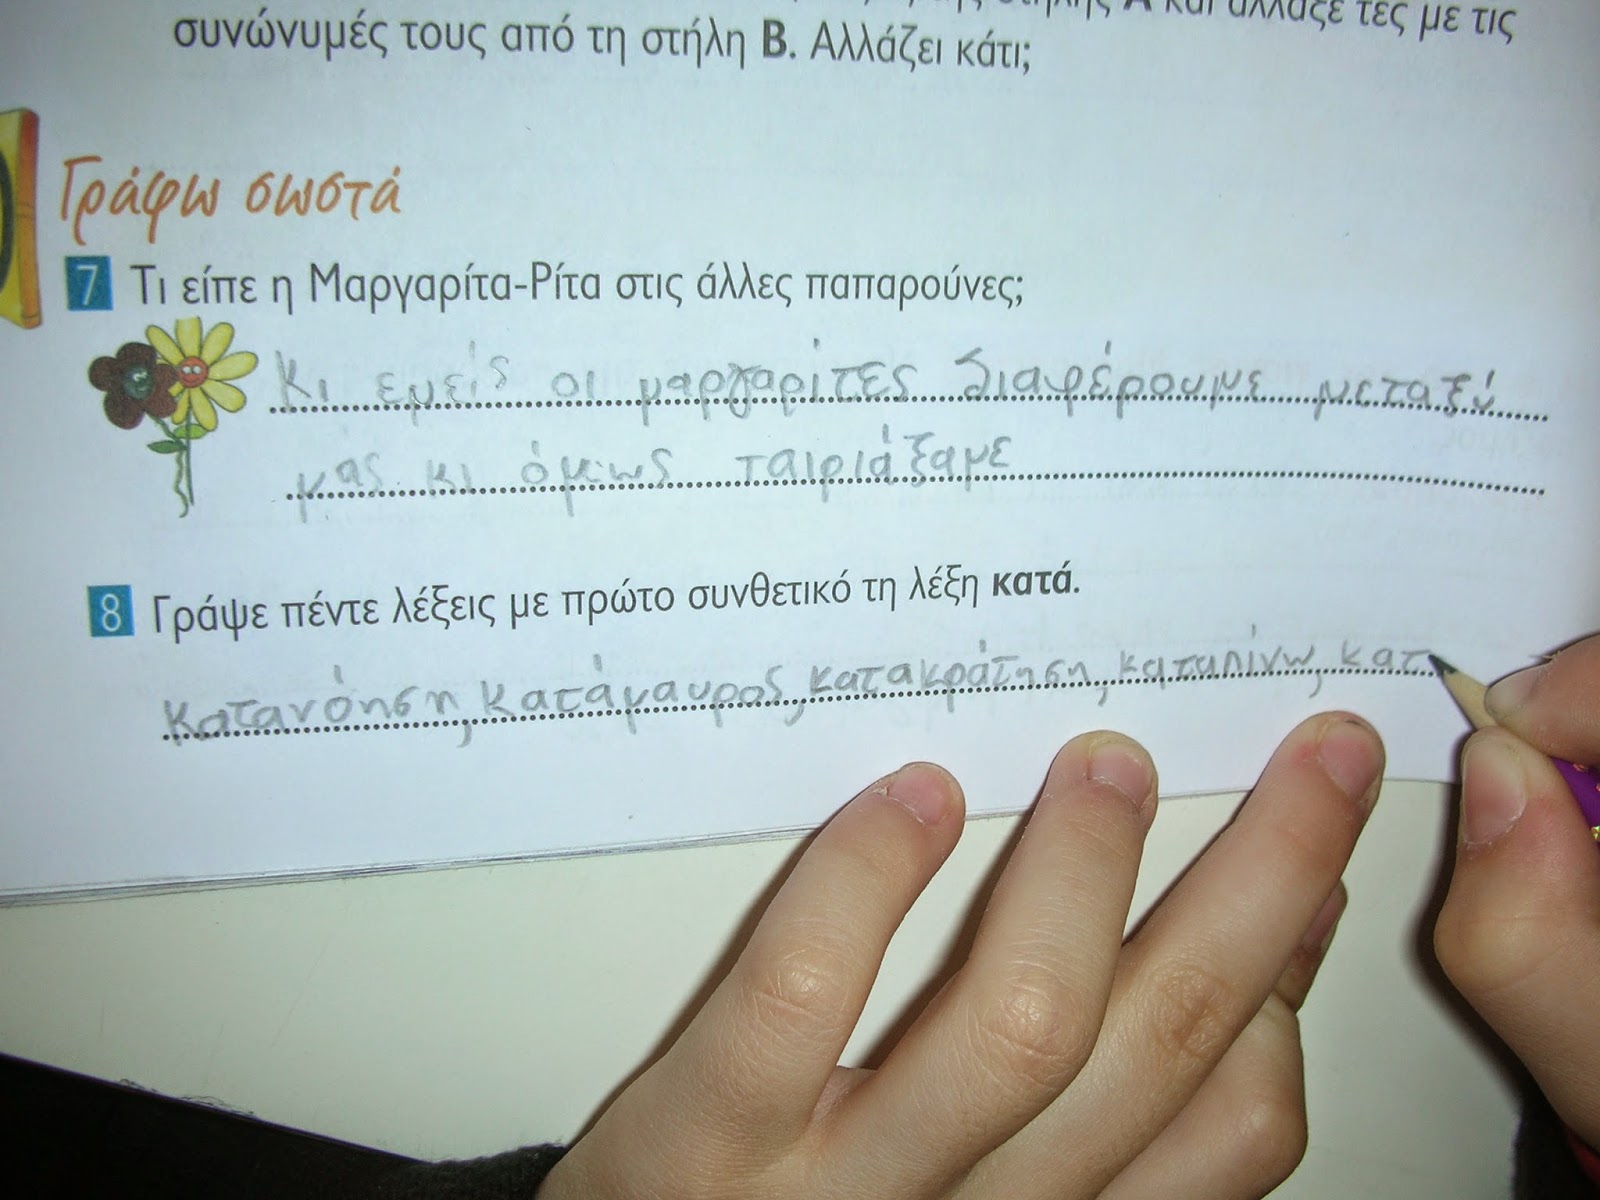 στήλης Α και άλλαξέ τες με τις
συνώνυμές τους από τη στήλη Β. Αλλάζει κάτι;
Γράφω σωστά
7 Τι είπε η Μαργαρίτα-Ρίτα στις άλλες παπαρούνες;
Κι εμείς οι μαργαρίτες διαφέρουμε μεταξύ
μας κι όμως ταιριάξαμε
8 Γράψε πέντε λέξεις με πρώτο συνθετικό τη λέξη κατά.
Κατανόηση, κατάμαυρος, κατακράτηση, καταπίνω, κατ